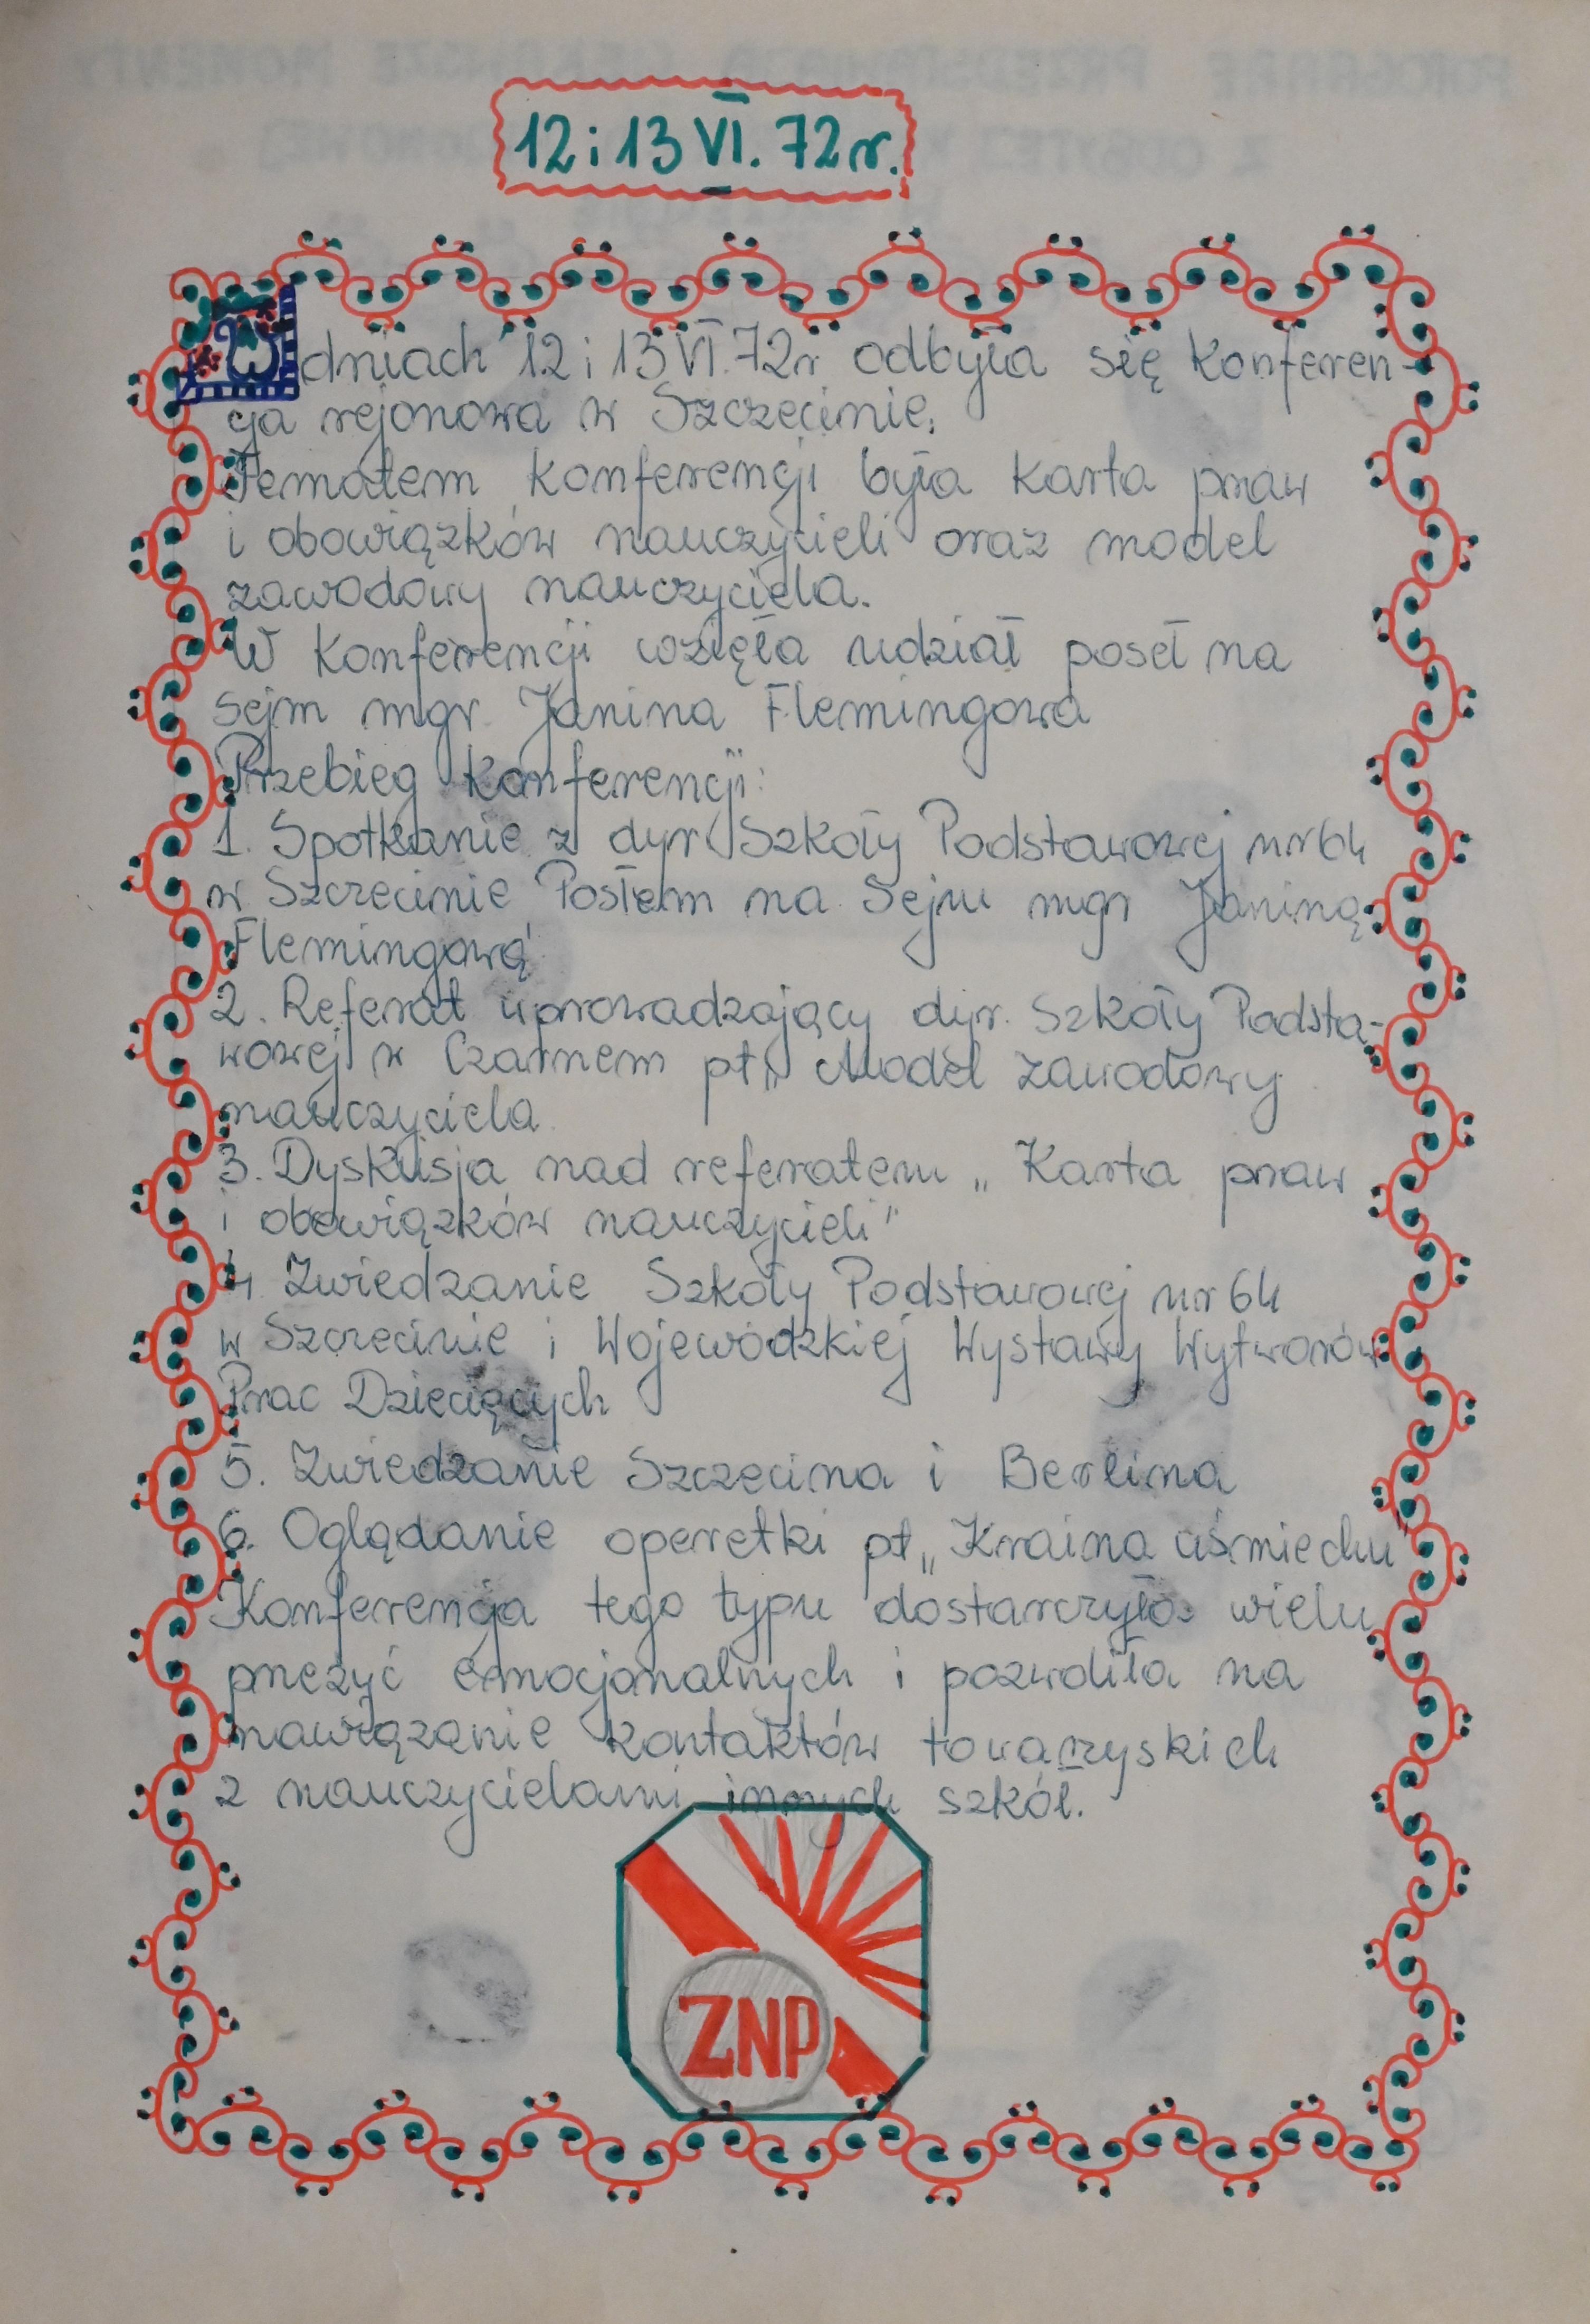 12 i 13 VI. 72 r.
W dniach 12 i 13 VI. 72r odbyła się Konferen-
cja rejonowa w Szczecinie.
Tematem konferencji była karta praw
i obowiązków nauczycieli oraz model
zawodowy nauczyciela.
W Konferencji wzięła udział poseł na
Sejm mgr. Janina Flemingowa
Przebieg konferencji:
1. Spotkanie z dyr. Szkoły Podstawowej nr 64
w Szczecinie Posłem na Sejm mgr Janiną
Flemingową
2. Referat wprowadzający dyr. Szkoły Podsta-
wowej w Czarnem pt „ Model zawodowy
nauczyciela
3. Dyskusja nad referatem „ Karta praw
i obowiązków nauczycieli"
4. Zwiedzanie Szkoły Podstawowej nr 64
w Szczecinie i Wojewódzkiej Wystawy Wytworów
Prac Dziecięcych
5. Zwiedzanie Szczecina i Berlina
6. Oglądanie operetki pt „ Kraina uśmiechu"
Konferencja tego typu dostarczyła wielu
przeżyć emocjonalnych i pozwoliła na
nawiązanie kontaktów towarzyskich
z nauczycielami innych szkół.
ZNP